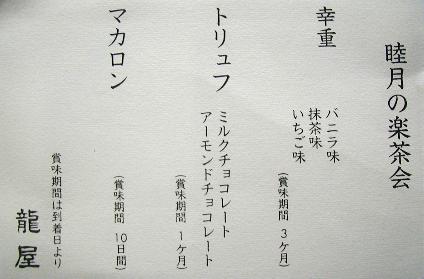 睦月の楽茶会
幸重
バニラ味
抹茶味
いちご味
(賞味期間 3ヶ月)
トリュフ
ミルクチョコレート
アーモンドチョコレート
(賞味期間 1ヶ月)
マカロン
(賞味期間 10日間)
賞味期間は到着日より
龍屋